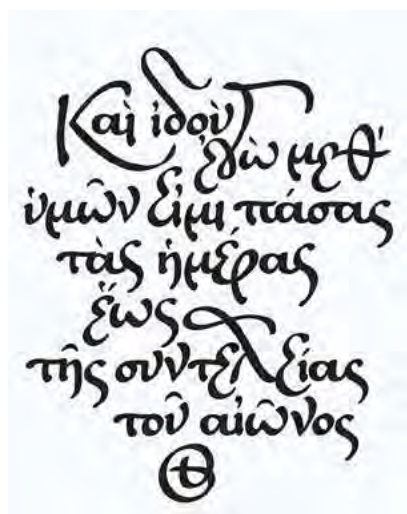 Καὶ ἰδοὺ
ἐγὼ μεθ'
ὑμῶν εἰμι πάσας
τὰς ἡμέρας
ἕως
τῆς συντελείας
τοῦ αἰῶνος